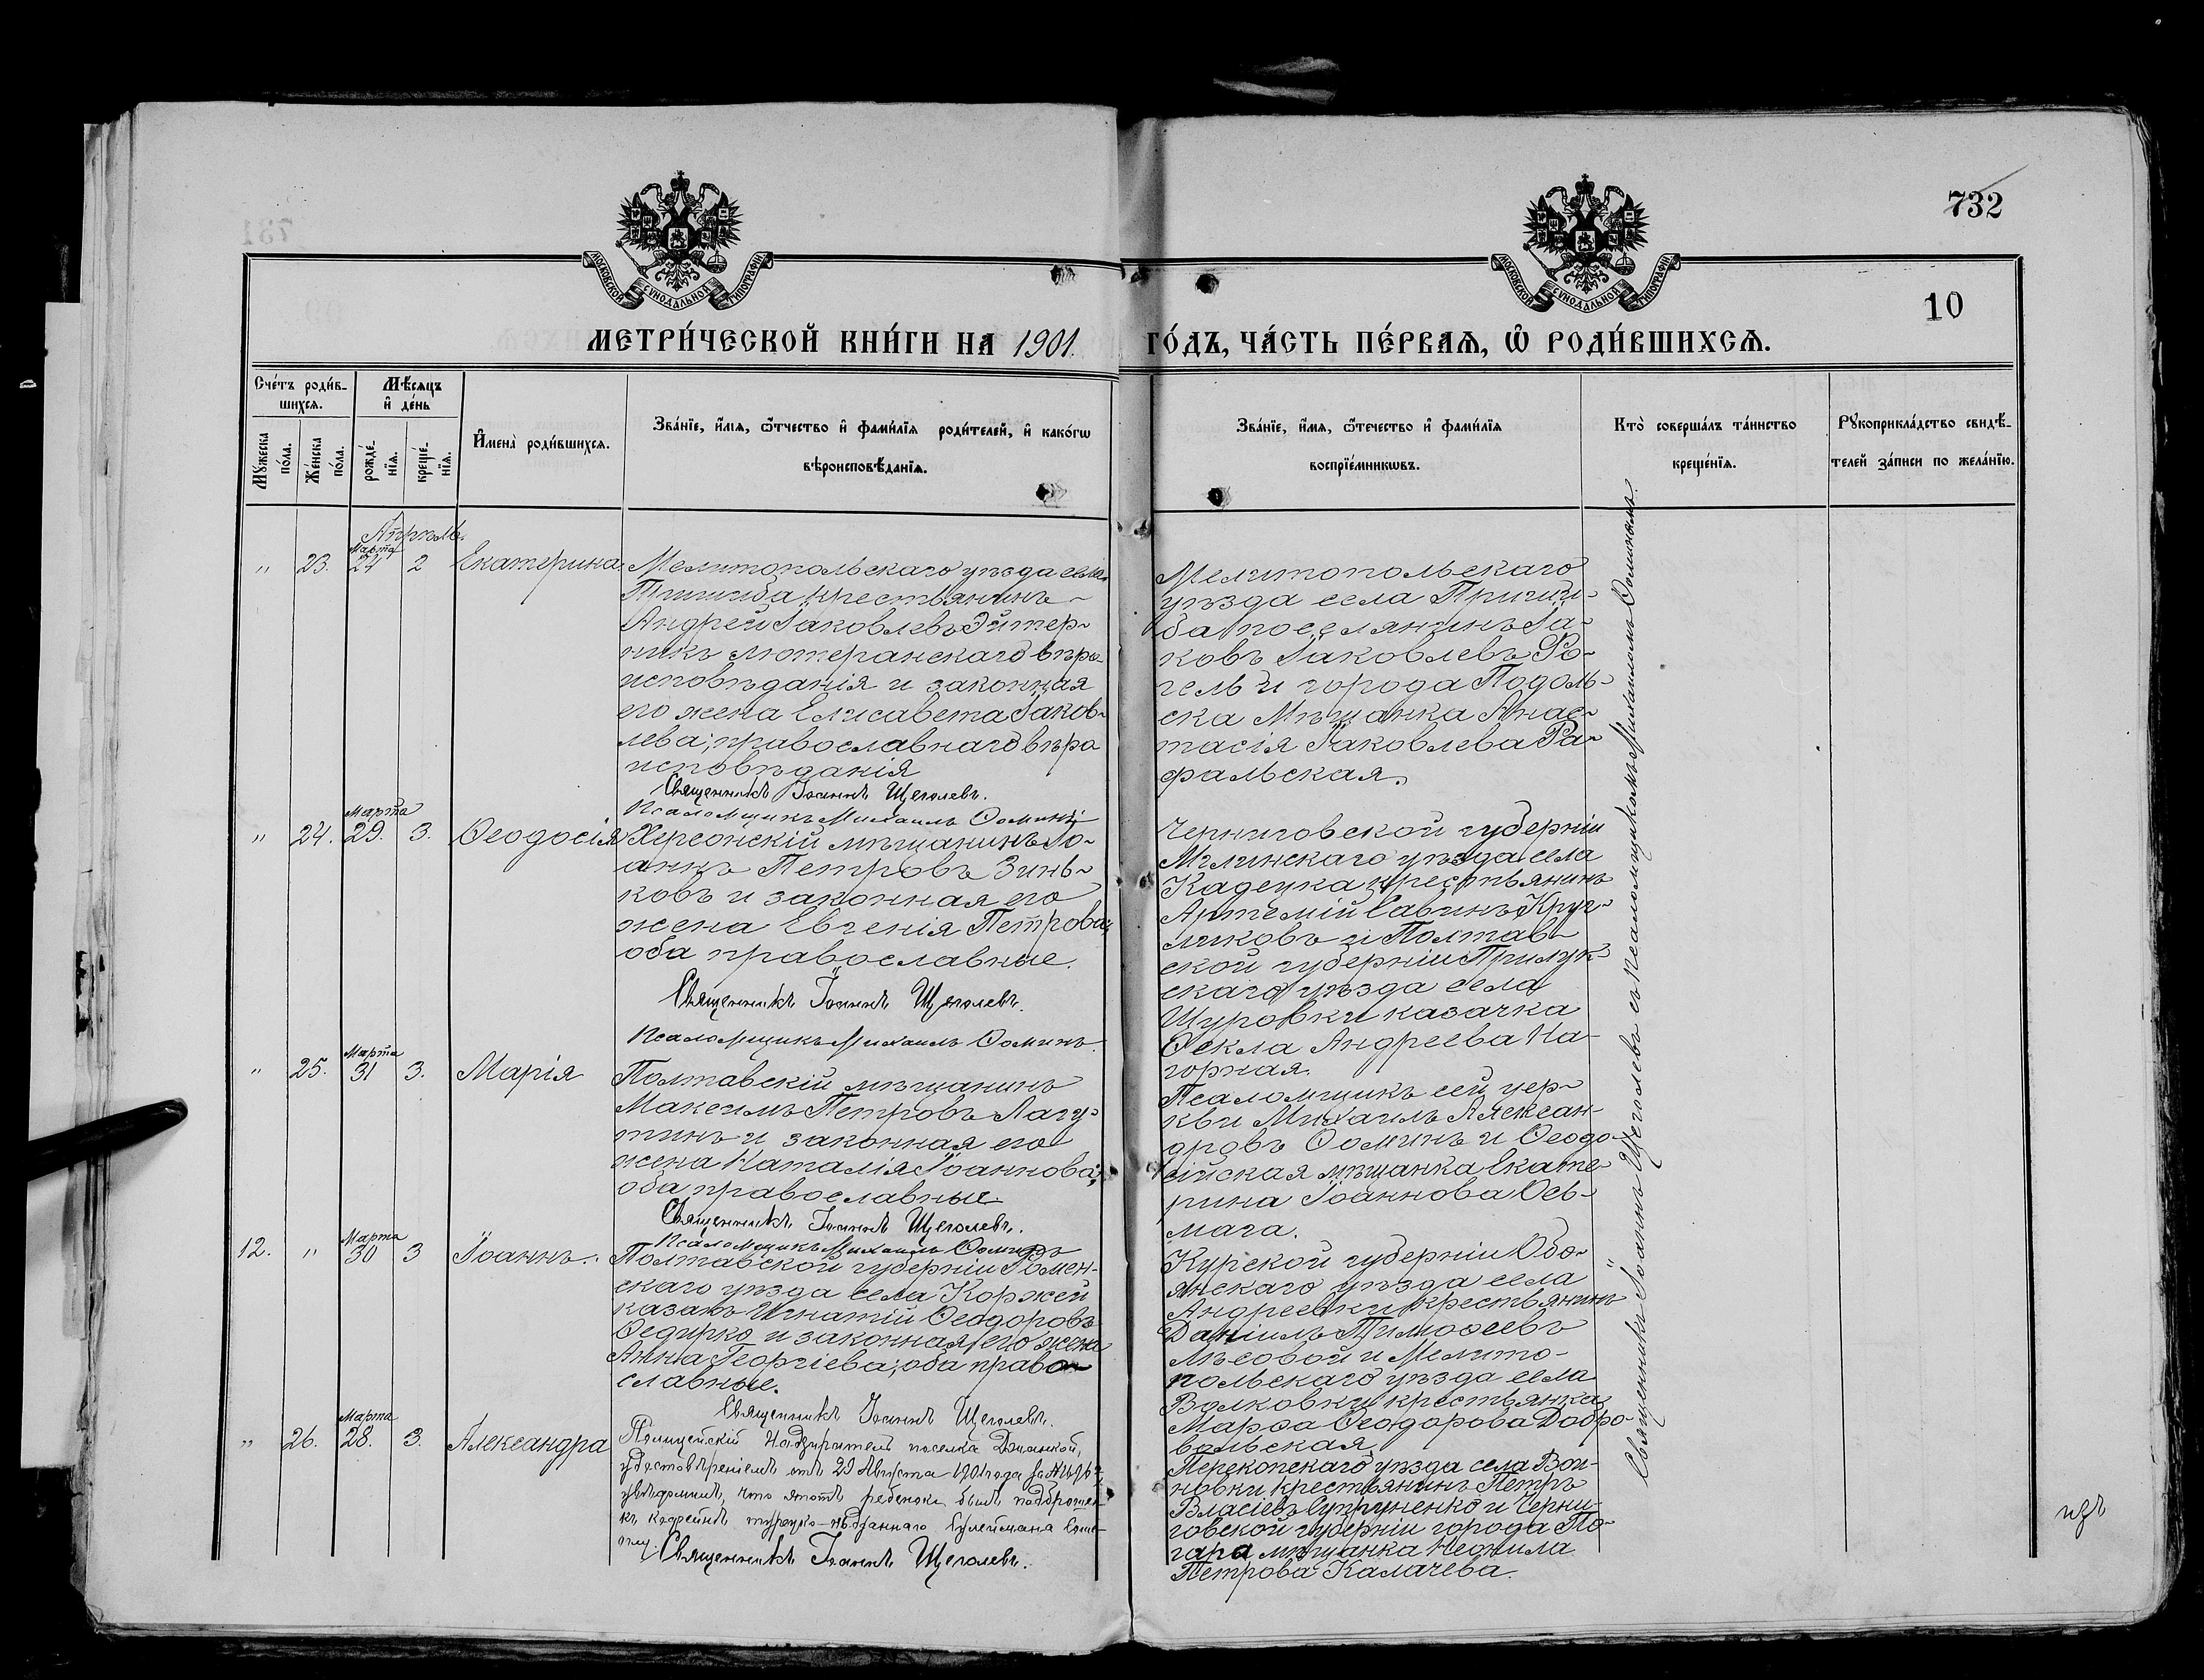 732
10
МОСКОВСКОЙ СѴНОДАЛЬНОЙ ТИПОГРАФІИ
МОСКОВСКОЙ СѴНОДАЛЬНОЙ ТИПОГРАФІИ
МЕТРИ́ЧЕСКОЙ КНИ́ГИ НА 1901. ГО́ДЪ, ЧА́СТЬ ПЕ́РВАѦ, Ѡ҆ РОДИ́ВШИХСѦ.
Сче́тъ роди́в-
шихсѧ.
Мꙋ́жеска по́ла.
Же́нска по́ла.
Мѣ́сѧцъ
и҆ де́нь
рожде́-
нїѧ.
креще́-
нїѧ.
И҆мена̀ роди́вшихсѧ.
Зва́нїе, и҆́мѧ, ѻ҆́тчество и҆ фами́лїѧ роди́телей, и҆ како́гѡ
вѣроисповѣ́данїѧ.
Зва́нїе, и҆́мѧ, ѻ҆те́чество и҆ фами́лїѧ
воспрїе́мникѡвъ.
Кто̀ соверша́лъ та́инство
креще́нїѧ.
Рꙋкоприкла́дство свидѣ́-
телей за́писи по жела́нїю.
Апрѣль.
" 23. Марта 24 2 Екатерина
Мелитопольскаго уѣзда села
Пришиба крестьянинъ
Андрей Іаковлевъ Эйтер-
никъ лютеранскаго вѣро-
исповѣданія и законная
его жена Елисавета Іаков-
лева; православнаго вѣро
исповѣданія
Священникъ Іоаннъ Щеголевъ.
Псаломщикъ Михаилъ Ѳоминъ
Мелитопольскаго
уѣзда села Приши-
ба поселянинъ Іа-
ковъ Іаковлевъ Фо-
гель и города Подоль-
ска Мѣщанка Анас-
тасія Іаковлева Ра-
фальская.
" 24. Марта 29. 3. Ѳеодосія
Херсонскій мѣщанинъ Іо-
аннъ Петровъ Зинь-
ковъ и законная его
жена Евгенія Петрова;
оба православные.
Священникъ Іоаннъ Щеголевъ.
Псаломщикъ Михаилъ Ѳоминъ.
Черниговской губерніи
Мглинскаго уѣзда села
Кадецка крестьянинъ
Артемій Савинъ Круг-
ликовъ и Полтав-
ской губерніи Прилук-
скаго уѣзда села
Щуровки казачка
Ѳекла Андреева На-
горная.
" 25. Марта 31 3. Марія
Полтавскій мѣщанинъ
Максимъ Петровъ Лагу-
тинъ и законная его
жена Наталія Іоаннова;
оба православные.
Священникъ Іоаннъ Щеголевъ.
Псаломщикъ Михаилъ Ѳоминъ
Псаломщикъ сей цер-
кви Михаилъ Алексан-
дровъ Ѳоминъ и Ѳеодо-
сійская мѣщанка Екате-
рина Іоаннова Осъ-
мага.
12. " Марта 30 3 Іоаннъ.
Полтавской губерніи Ромен-
скаго уѣзда села Коржей
казакъ Игнатій Ѳеодоровъ
Ѳедирко и законная его жена
Анна Георгіева; оба право-
славные.
Священникъ Іоаннъ Щеголевъ.
Курской губерніи Обо-
янскаго уѣзда села
Андреевки крестьянинъ
Даніилъ Тимоѳеевъ
Лѣсовой и Мелито-
польскаго уѣзда села
Волковки крестьянка
Марѳа Ѳеодорова Добро-
вольская
" 26. Марта 28. 3. Александра
Полицейскій Надзиратель поселка Джанкой,
удостовѣреніемъ отъ 29 Августа 1901 года за №
увѣдомилъ, что этотъ ребенокъ былъ подброшен
къ кофейнѣ турецко-подданнаго Сулеймана
Священникъ Іоаннъ Щеголевъ.
Перекопскаго уѣзда села Вои-
новки крестьянинъ Петръ
Власіевъ Супруненко и Черни-
говской губерніи города По-
гара мѣщанка Неонила
Петрова Калачева.
Священникъ Іоаннъ Щеголевъ съ псаломщикомъ Михаиломъ Ѳоминымъ.